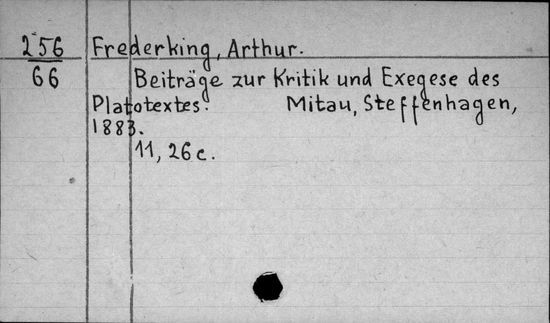 256 Frederking, Arthur.
66 Beiträge zur Kritik und Exegese des
Platotextes. Mitau, Steffenhagen,
1883.
11, 26 c.